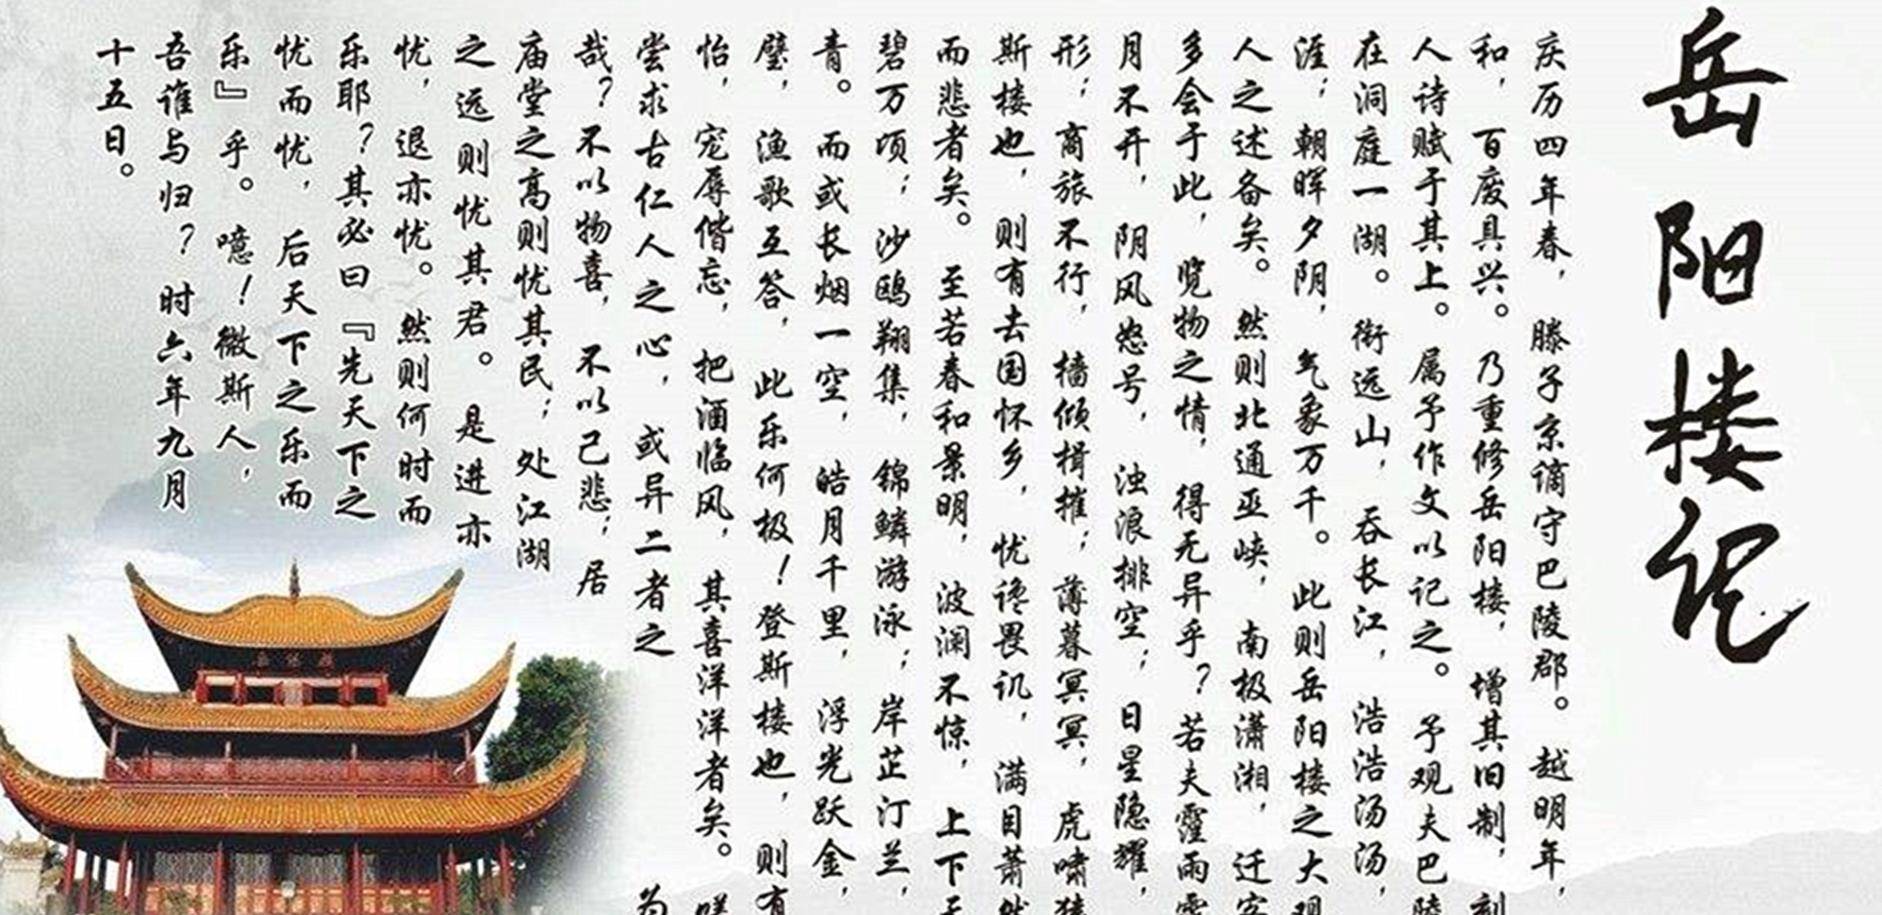 岳阳楼记
庆历四年春，滕子京谪守巴陵郡。越明年，
和，百废具兴。乃重修岳阳楼，增其旧制，刻
人诗赋于其上。属予作文以记之。予观夫巴陵
在洞庭一湖。衔远山，吞长江，浩浩汤汤，
涯；朝晖夕阴，气象万千。此则岳阳楼之大观
人之述备矣。然则北通巫峡，南极潇湘，迁客
多会于此，览物之情，得无异乎？若夫霪雨霏
月不开，阴风怒号，浊浪排空；日星隐耀，
形；商旅不行，樯倾楫摧；薄暮冥冥，虎啸猿
斯楼也，则有去国怀乡，忧谗畏讥，满目萧然
而悲者矣。至若春和景明，波澜不惊，上下天
碧万顷；沙鸥翔集，锦鳞游泳；岸芷汀兰，
青。而或长烟一空，皓月千里，浮光跃金，
璧，渔歌互答，此乐何极！登斯楼也，则有
怡，宠辱偕忘，把酒临风，其喜洋洋者矣。嗟
尝求古仁人之心，或异二者之为
哉？不以物喜，不以己悲；居
庙堂之高则忧其民；处江湖
之远则忧其君。是进亦
忧，退亦忧。然则何时而
乐耶？其必曰『先天下之
忧而忧，后天下之乐而
乐』乎。噫！微斯人，
吾谁与归？时六年九月
十五日。